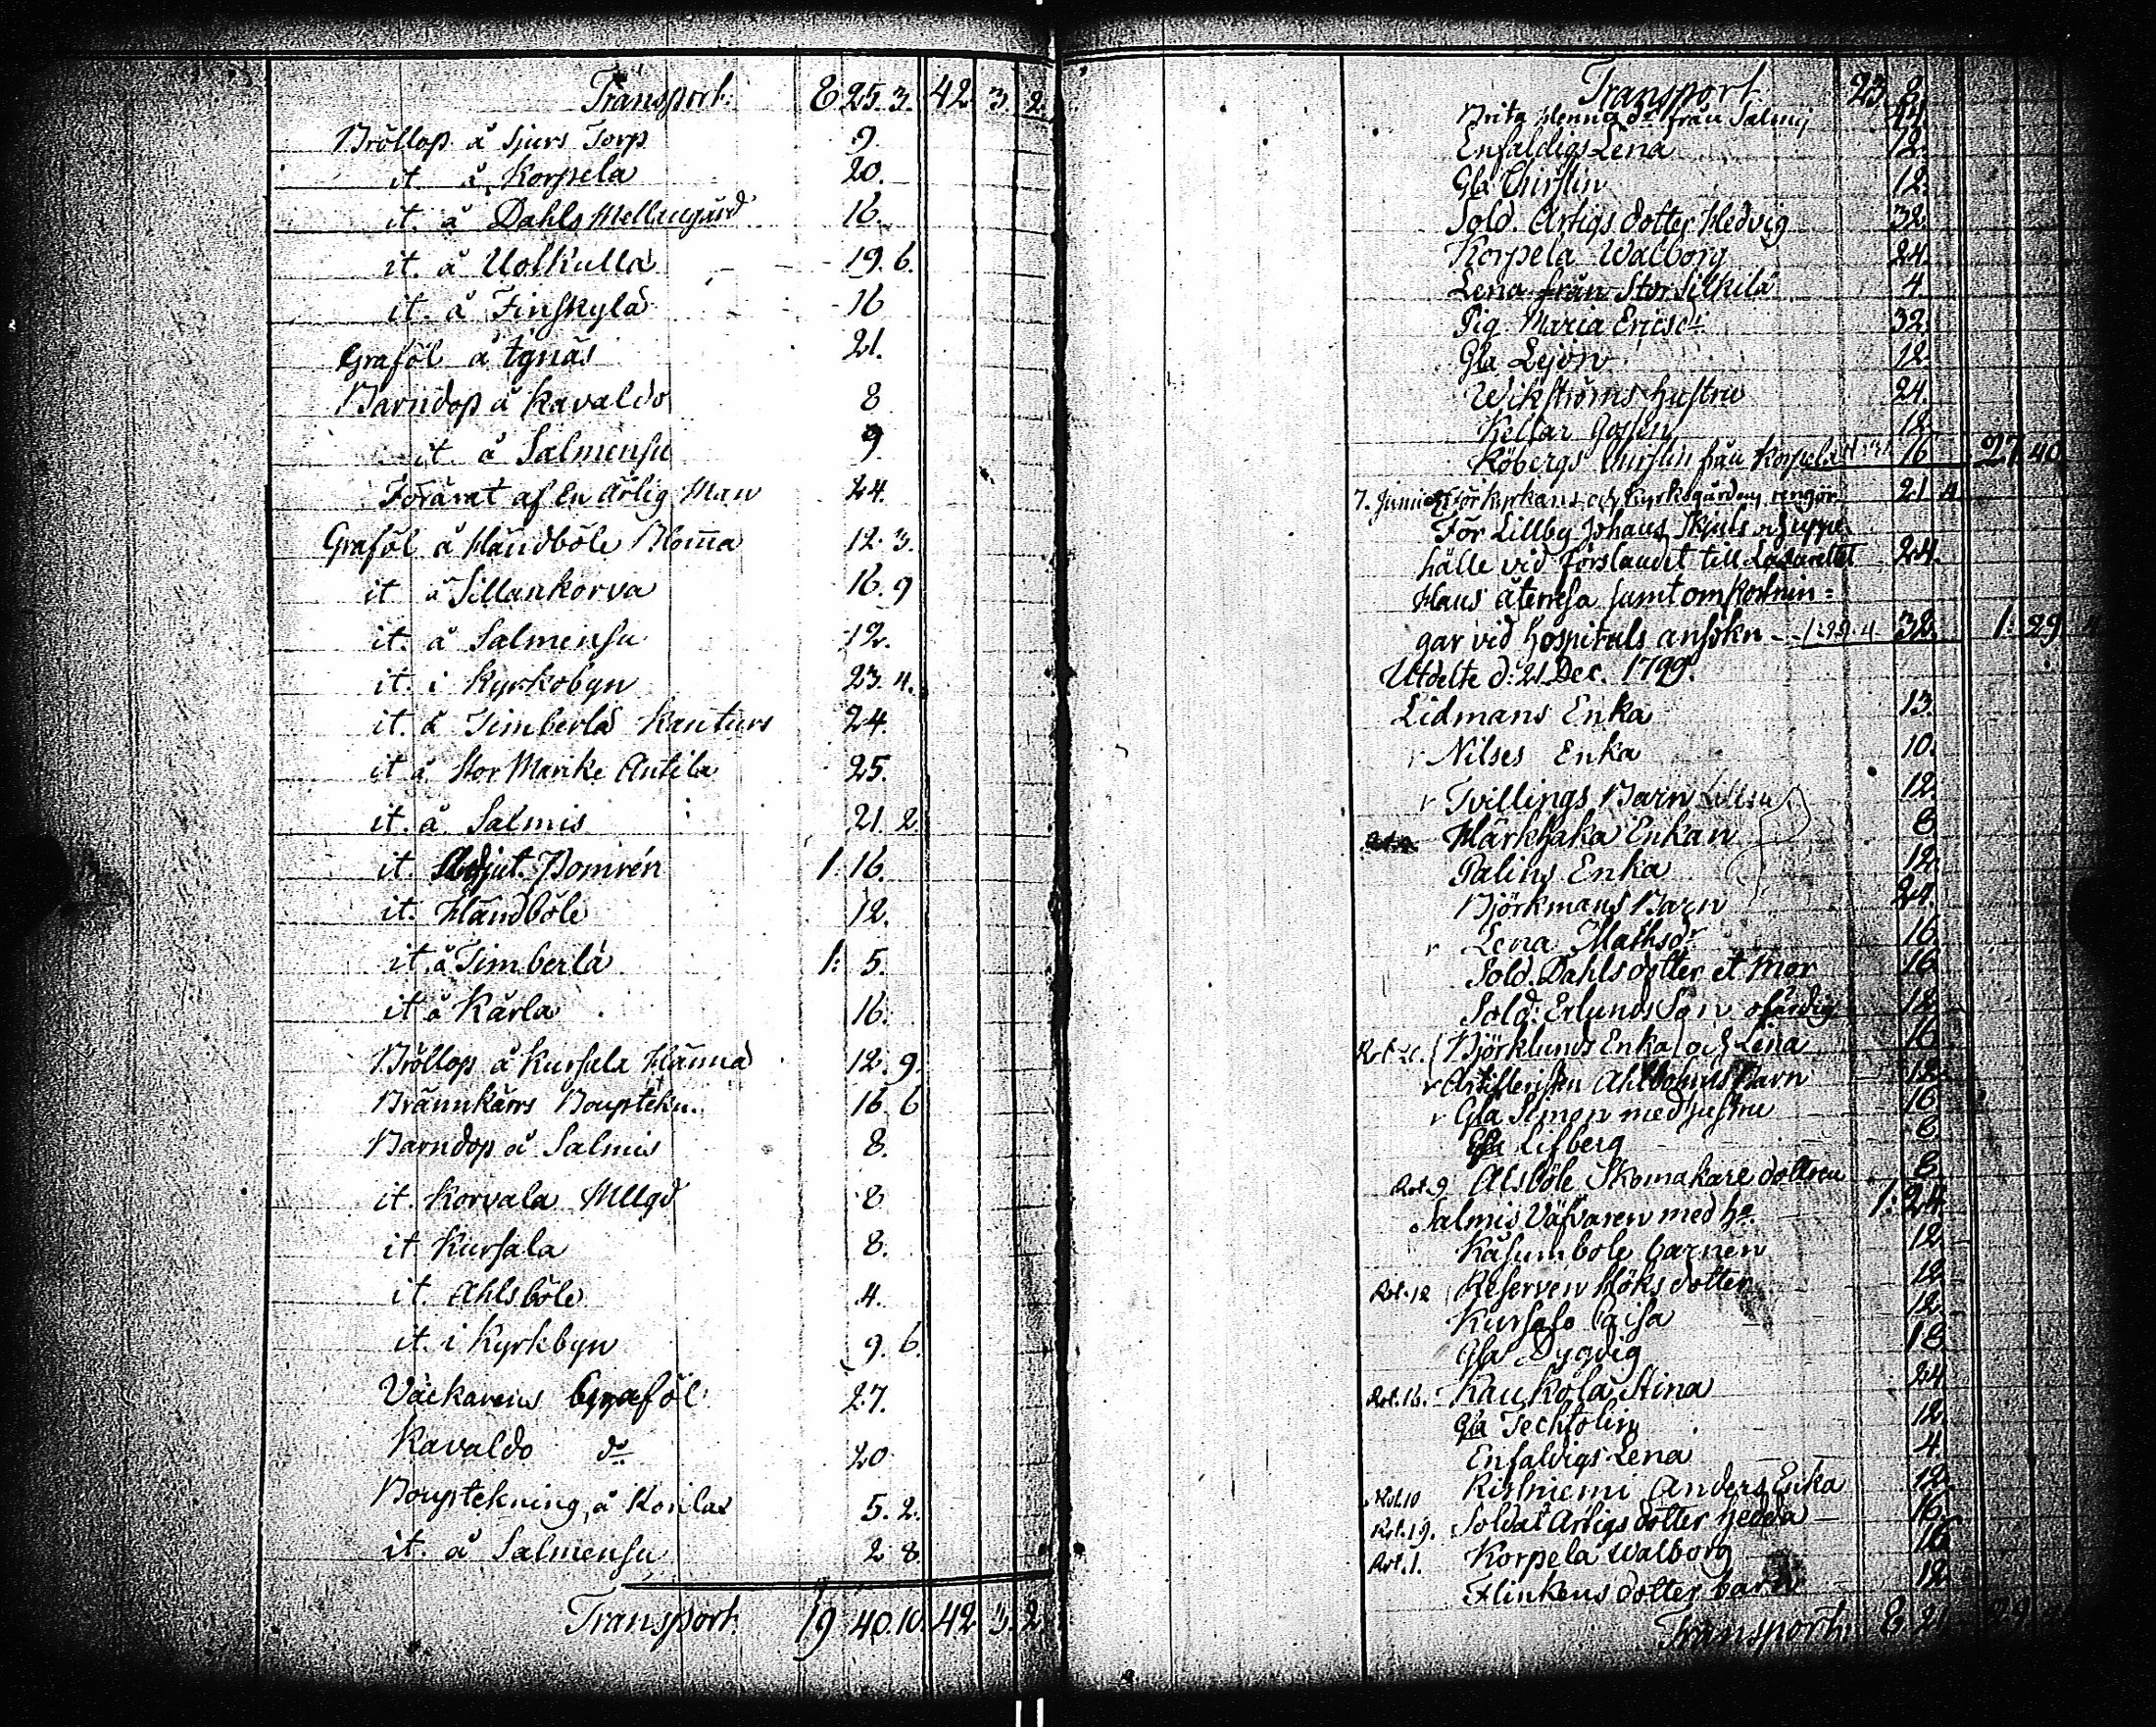 Transport: 8 25. 3. 42 3. 2.
Bröllop å Sjurs Torp 9
it å Korpela 20.
it. å Dahls Mellangård 16.
it. å Uotkulla 19. 6.
it. å Finskylä 16
Graföl å Ignäs 21.
Barndop å Kavaldo 8
it å Salmensu 9
Foräret af En Ärlig Man 24.
Graföl å Handböle Nomma 12. 3.
it å Sillankorva 16. 9
it. å Salmensu 12.
it. i Kyrkobyn 23. 4.
it. å Timberla Kanturs 24.
it å Stor Marike Antila 25.
it. å Salmis 21. 2.
it. Adjut. Bomrén 1: 16.
it. Handböle 12.
it. å Timberlä 1: 5.
it å Kärla 16.
Bröllop å Kursala Hanna 12. 9.
Brännkärrs Boupteku. 16. 6
Barndop å Salmis 8.
it. Korvala Mllgd 8
it Kursala 8.
it. Ahlsböle 4.
it. i Kyrkbyn 9. 6.
Väckarens Graföl 27.
Kavaldo do 20
Bouptekning å Konilax 5. 2.
it. å Salmensu 2 8.
Transport. 19 40. 10. 42 3. 2.
Transport 23. 8.
Brita Henric dr från Salmij 24.
Enfaldigs Lena 12.
Gla Chirstin 12.
Sold. Artigs dotter Hedvig 32.
Korpela Walborg 24.
Lena från Stor Silkilä 4.
Pig. Maria Ericsdr 32.
Gla Lejon 12.
Wikströms hustru 24.
Kellar Gossen 12.
Köbergs Chirstin från Korpela 16 27. 40
7. Junii För kyrkans och kyrkogårdens rengör 21 4
För Lillby Johans Skjuts och uppe
hälle vid förslandet till Lasarettet 24.
Hans återresa samt omkostnin=
gar vid hospitals ansökn - 1: 29. 4 32. 1: 29
Utdelte d: 21 Dec. 1799.
Lidmans Enka 13.
Nilses Enka 10.
Tvillings Barn 12.
Härkhaka Enkan 8
Palins Enka 12.
Björkmans Barn 24.
Lena Mathsdr 16.
Sold. Dahls dotter et Mor 16
Sold: Erlunds Son ofärdig 12.
Björklunds Enka och Lena 16
Artilleristen Ahlboms Barn 12.
Gla Simon med hustru 16
Gla Lifberg 8.
Rot. 9 Alsböle Skomakare dottren 8
Salmis Väfvaren med ho 1: 24
Kåsumbole barnen 12
Rot. 12 Reserven Höks dotter 12
Kursalo Caisa 12
Gla Dygdig 18
Rot. 16. Kaukola Stina 24
Gla Techtolin 12.
Enfaldigs Lena 4
Rot. 10 Ristniemi Anders Enka 12.
Rot. 19. Soldat Artigs dotter hedda 16.
Rot. 1. Korpela Walborg 16
Flinkens dotter barn 12
Transport. 8 21 29